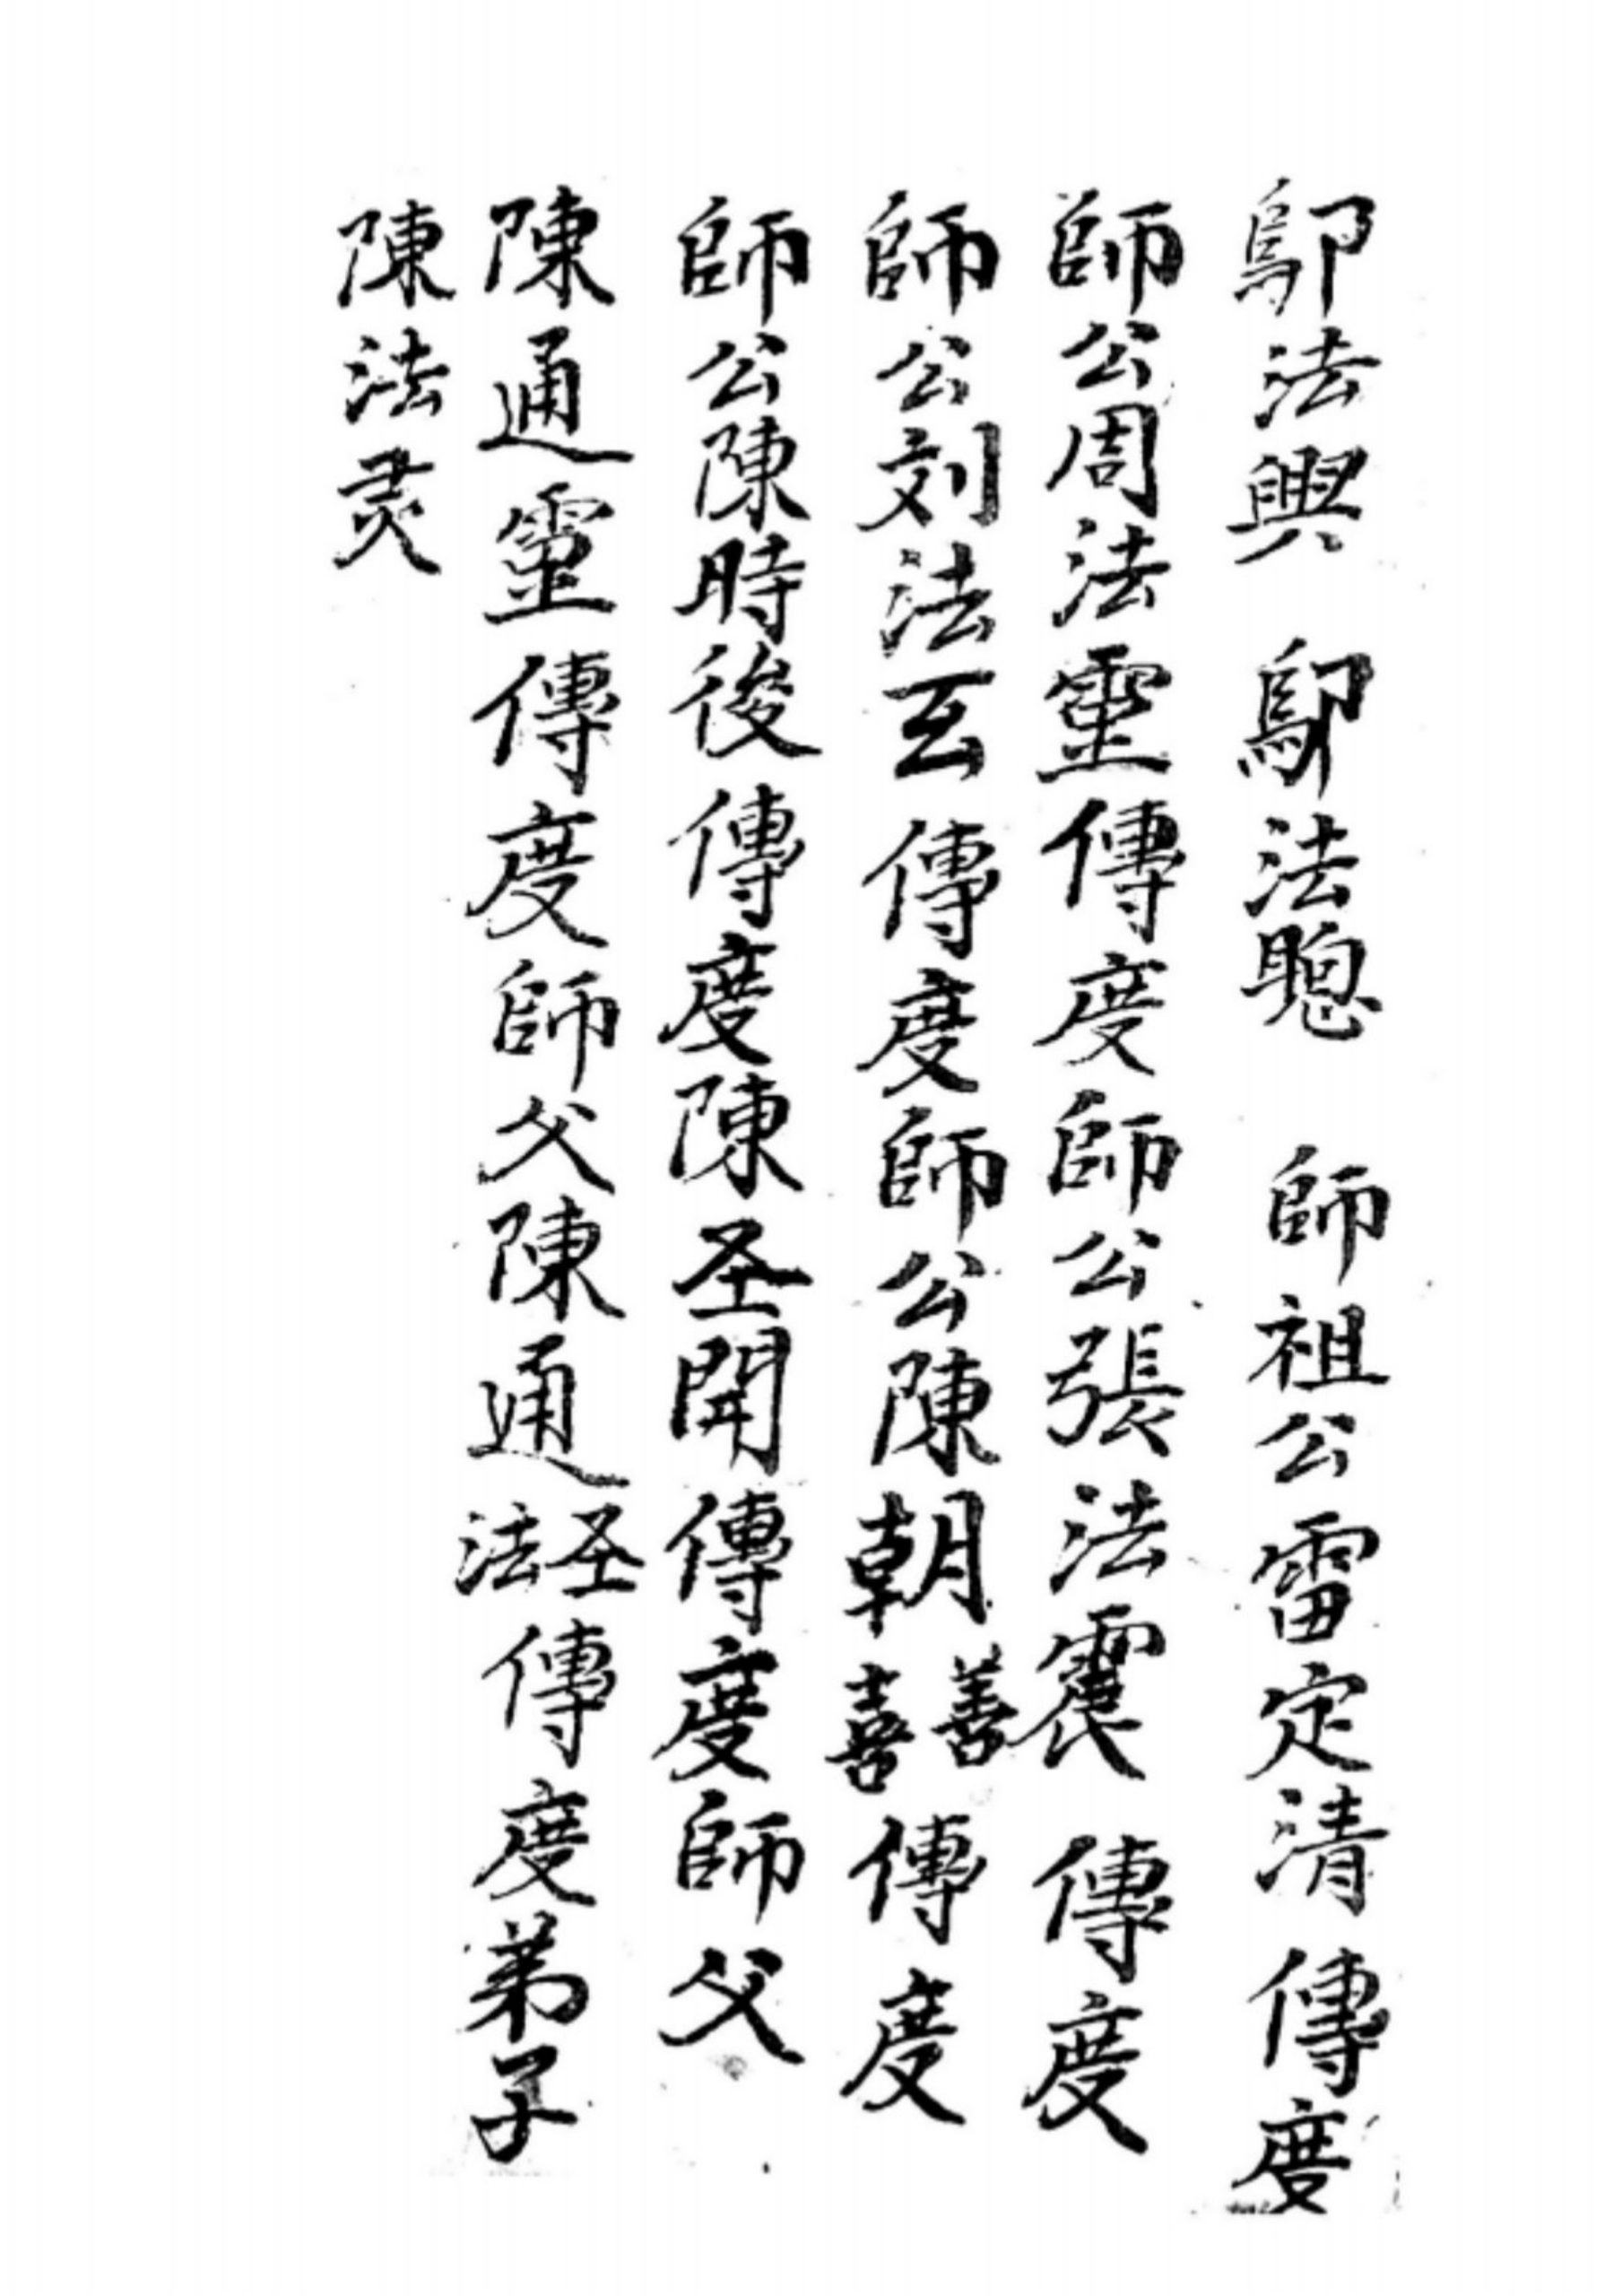 鄔法興 鄔法聰 師祖公雷定清傳度
師公周法靈傳度師公張法震傳度
師公刘法玄傳度師公陳朝善喜傳度
師公陳時後傳度陳圣開傳度師父
陳通靈傳度師父陳通圣法傳度弟子
陳法灵